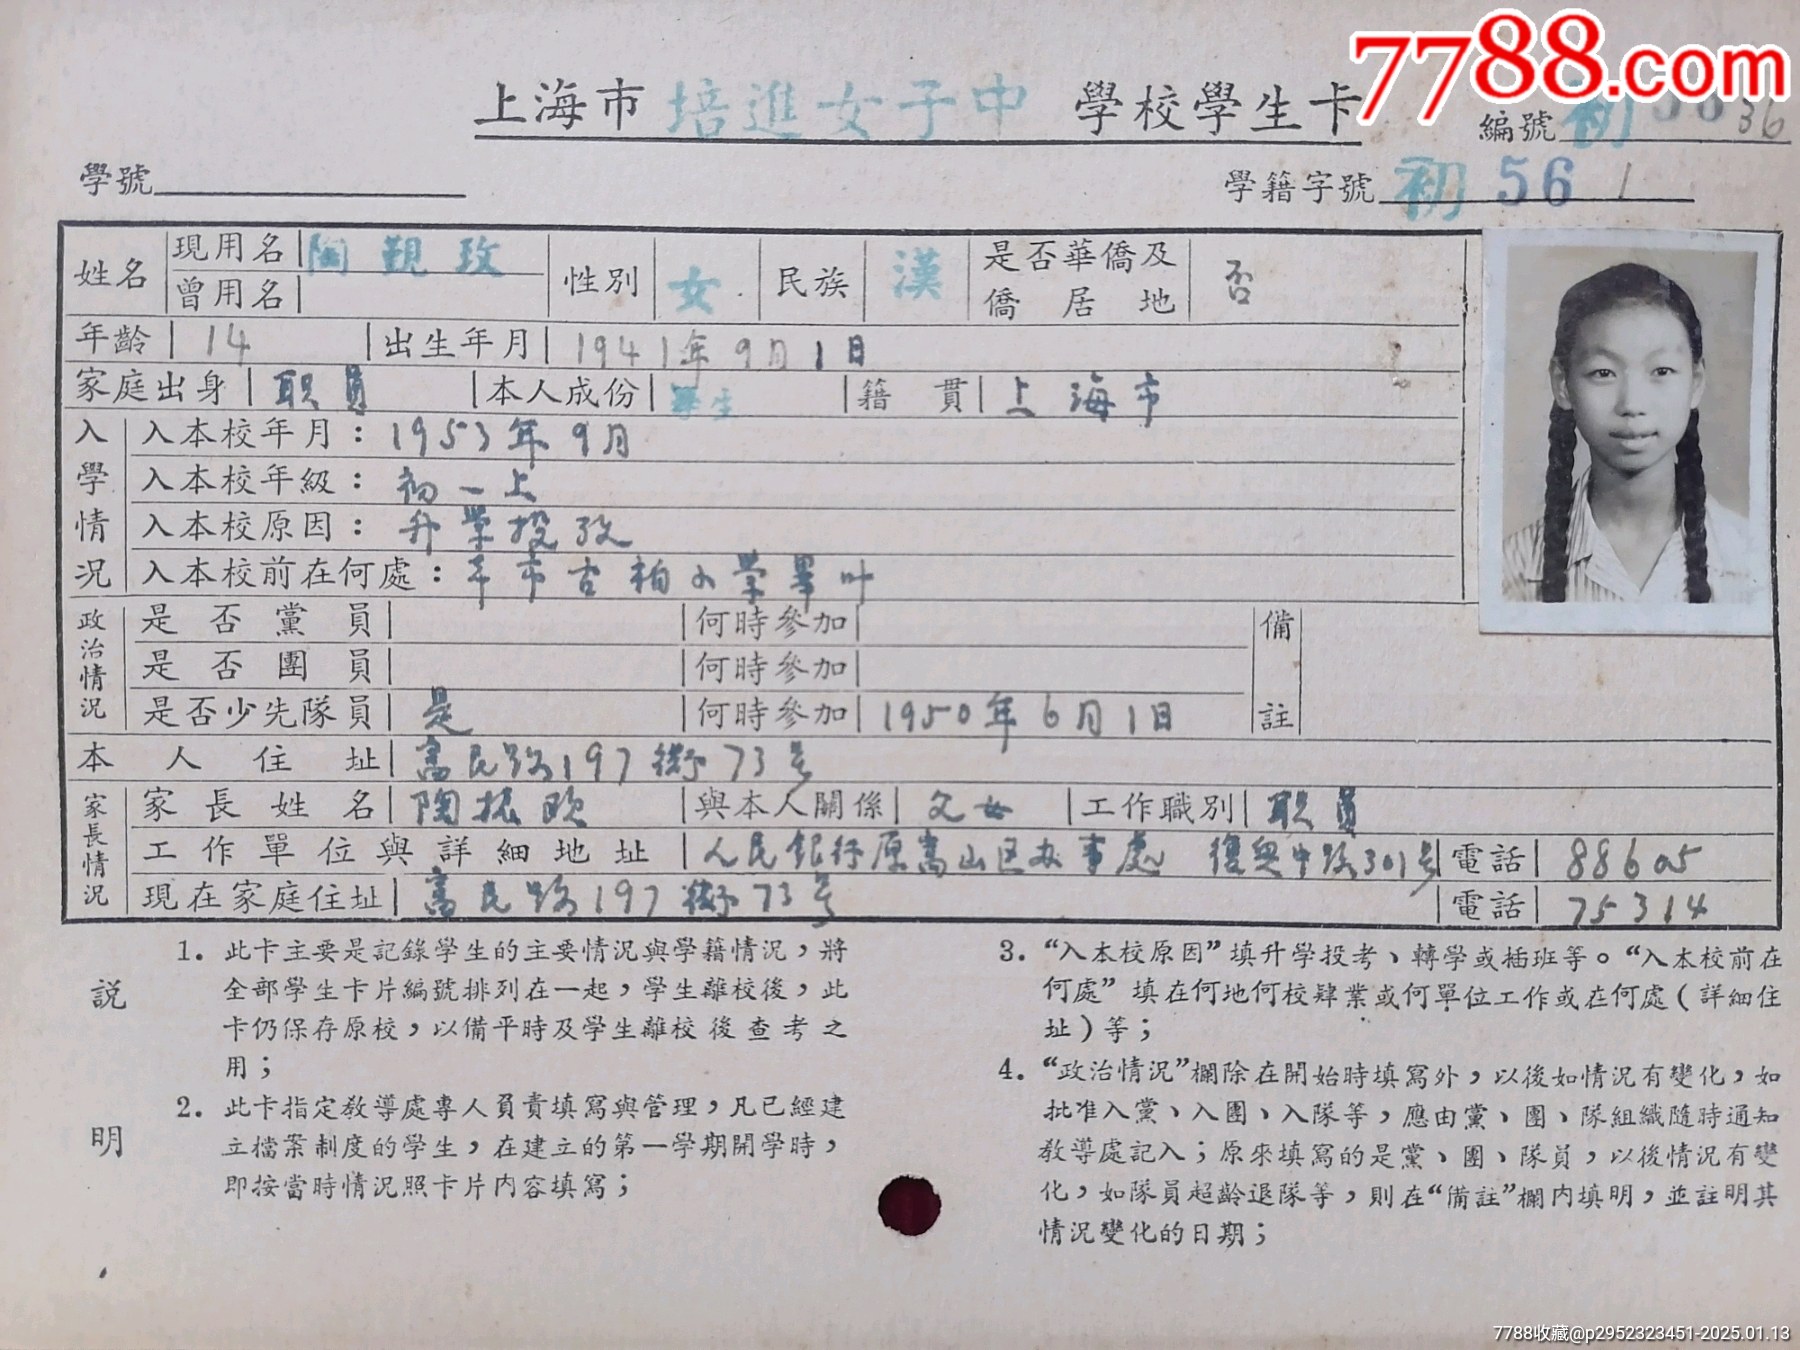 7788.com
上海市 培進女子中 學校學生卡
編號 初 5636
學號
學籍字號 初 56 1
姓名 現用名 陶觀玫 性別 女 民族 漢 是否華僑及僑居地 否
曾用名
年齡 14 出生年月 1941年9月1日
家庭出身 职員 本人成份 學生 籍貫 上海市
入學情况
入本校年月：1953年9月
入本校年級：初一上
入本校原因：升學投攷
入本校前在何處：本市古柏小学畢业
政治情况
是否黨員 何時參加
是否團員 何時參加
是否少先隊員 是 何時參加 1950年6月1日
備註
本人住址 富民路197衖73号
家長情況
家長姓名 陶振歐 與本人關係 父女 工作職別 职員
工作單位與詳細地址 人民銀行原嵩山区办事處 復興中路301号 電話 88605
現在家庭住址 富民路197衖73号 電話 75314
説明
1. 此卡主要是記錄學生的主要情況與學籍情況，將
全部學生卡片編號排列在一起，學生離校後，此
卡仍保存原校，以備平時及學生離校後查考之
用；
2. 此卡指定敎導處專人負責填寫與管理，凡已經建
立檔案制度的學生，在建立的第一學期開學時，
即按當時情況照卡片内容填寫；
3. “入本校原因”填升學投考、轉學或插班等。“入本校前在
何處”填在何地何校肄業或何單位工作或在何處（詳細住
址）等；
4. “政治情況”欄除在開始時填寫外，以後如情況有變化，如
批准入黨、入團、入隊等，應由黨、團、隊組織隨時通知
敎導處記入；原來填寫的是黨、團、隊員，以後情況有變
化，如隊員超齡退隊等，則在“備註”欄内填明，並註明其
情況變化的日期；
7788收藏@p2952323451-2025.01.13